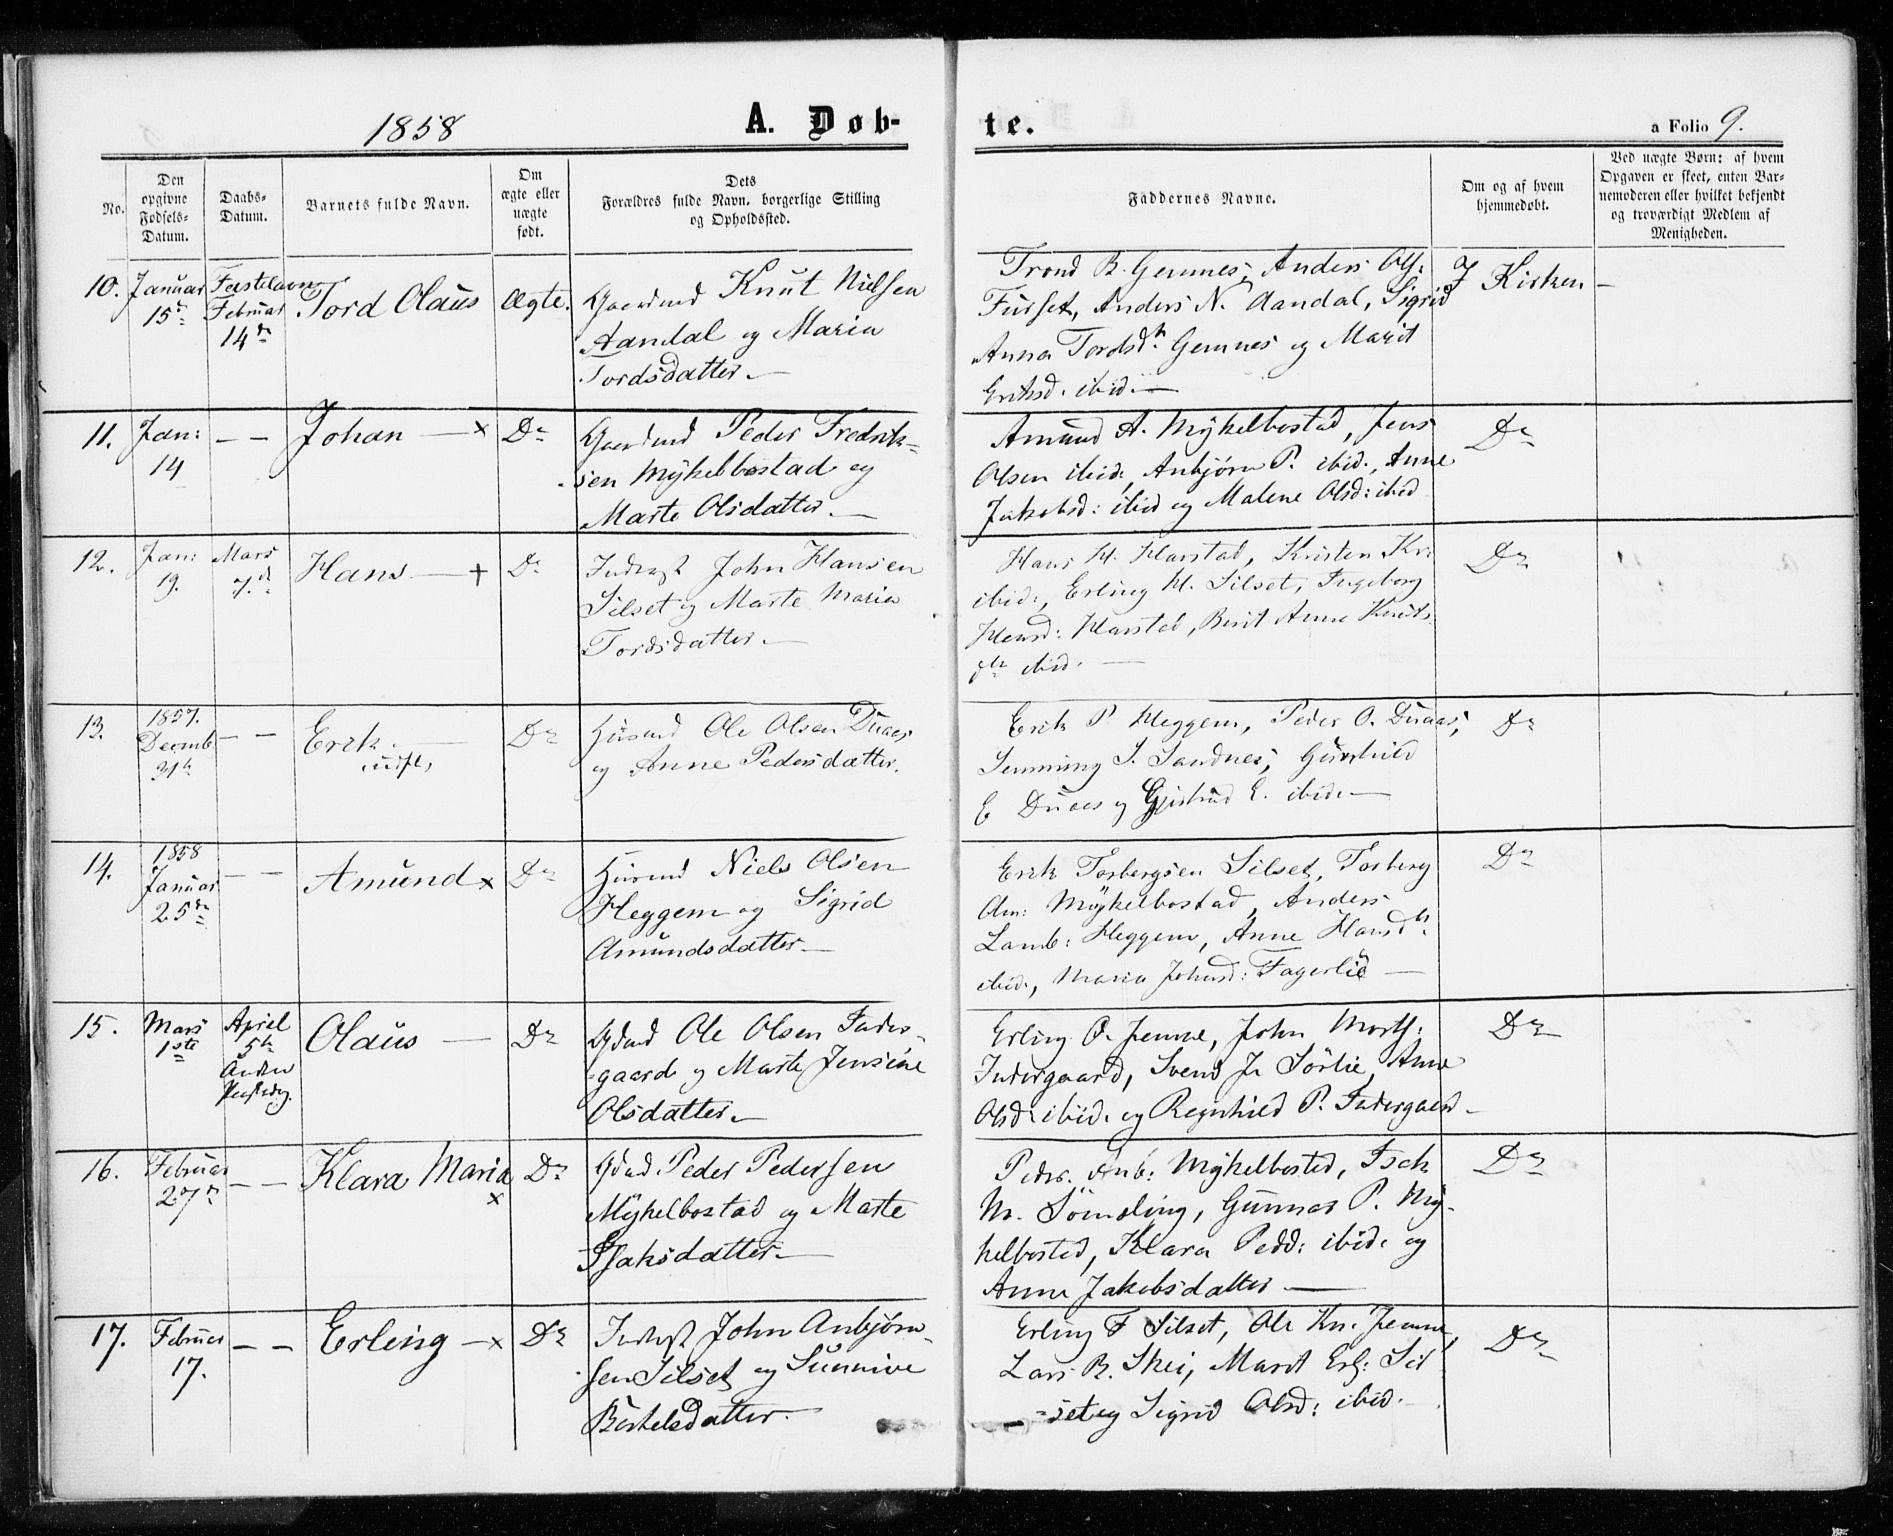 1858
A. Døb-
te.
a Folio 9.
No.
Den
opgivne
Fødsels-
Datum.
Daabs-
Datum.
Barnets fulde Navn.
Om
ægte eller
uægte
født.
Dets
Forældres fulde Navn, borgerlige Stilling
og Opholdssted.
Faddernes Navne.
Om og af hvem
hjemmedøbt.
Ved uægte Børn: af hvem
Opgaven er skeet, enten Bar-
nemoderen eller hvilket bekjendt
og troværdigt Medlem af
Menigheden.
10.
Januar
15de
Fastelavn
Februar
14de
Tord Olaus
Ægte.
Gaardmd Knut Nielsen
Aandal og Maria
Tordsdatter. —
Trond R. Gemnes, Anders Ols:
Furset, Anders N. Aandal, Sigrid
Anna Tordsdtr Gemnes og Marit
Eriksd. ibid. —
I Kirken —
11.
Jan:
14
— —
Johan — x
Do
Gaardmd Peder Fredrik-
sen Mÿkelbostad og
Marte Olsdatter. —
Amund A. Mÿkelbostad, Jens
Olsen ibid., Anbjørn P. ibid., Anne
Jakobsd: ibid og Malene Olsd: ibid
Do
12.
Jan:
19.
Mars
7de
Hans — +
Do
Inderst John Hansen
Silset og Marte Maria
Tordsdatter. —
Hans H. Harstad, Kristen Kr:
ibid., Erling H. Silset, Ingeborg
Hansd: Harstad, Berit Anne Knuts-
dtr ibid. —
Do
13.
1857.
Decemb
— —
Erik. —
Do
Husmd Ole Olsen Duaas
og Anne Pedersdatter.
Erik P. Heggem, Peder O. Duaas,
Semming J. Sandnes, Gunhild
E Duaas og Gjertrud E. ibid. —
Do
14.
1858
Januar
25de
— —
Amund x
Do
Husmd Niels Olsen
Heggem og Sigrid
Amundsdatter —
Erik Torbergsen Silset, Torberg
Am: Mÿkelbostad, Anders
Lamb: Heggem, Anne Hansdtr
ibid., Maria Johnsd: Fagerlie —
Do
15.
Mars
1ste
April
5te
Anden
Paaskedag.
Olaus —
Do
Gdmd Ole Olsen Inder-
gaard og Marte Jensine
Olsdatter. —
Erling O. Jemne, John Morts:
Indergaard, Svend J. Sørlie, Anne
Olsd: ibid. og Regnhild P. Indergaard —
Do
16.
Februar
27de
— —
Klara Maria
x
Do
Gdmd Peder Pedersen
Mÿkelbostad og Marte
Isaksdatter. —
Peder Anb: Mÿkelbosted, Isak
M. Sömeling, Gunnar P. Mÿ-
kelbosted, Klara Pedd: ibid. og
Anne Jakobsdatter —
Do
17.
Februar
17.
— —
Erling — x
Do
Inderst John Anbjørn-
sen Silset og Sunnive
Bertelsdatter. —
Erling F Silset, Ole Kn. Jemne,
Lars R. Skei, Marit Erl: Sil
-set og Sigrid Olsd: ibid. —
Do